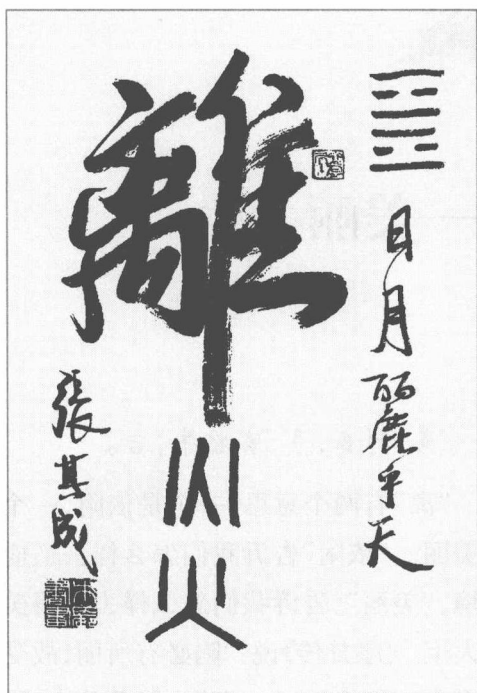 ䷝
日月麗乎天
離
張其成